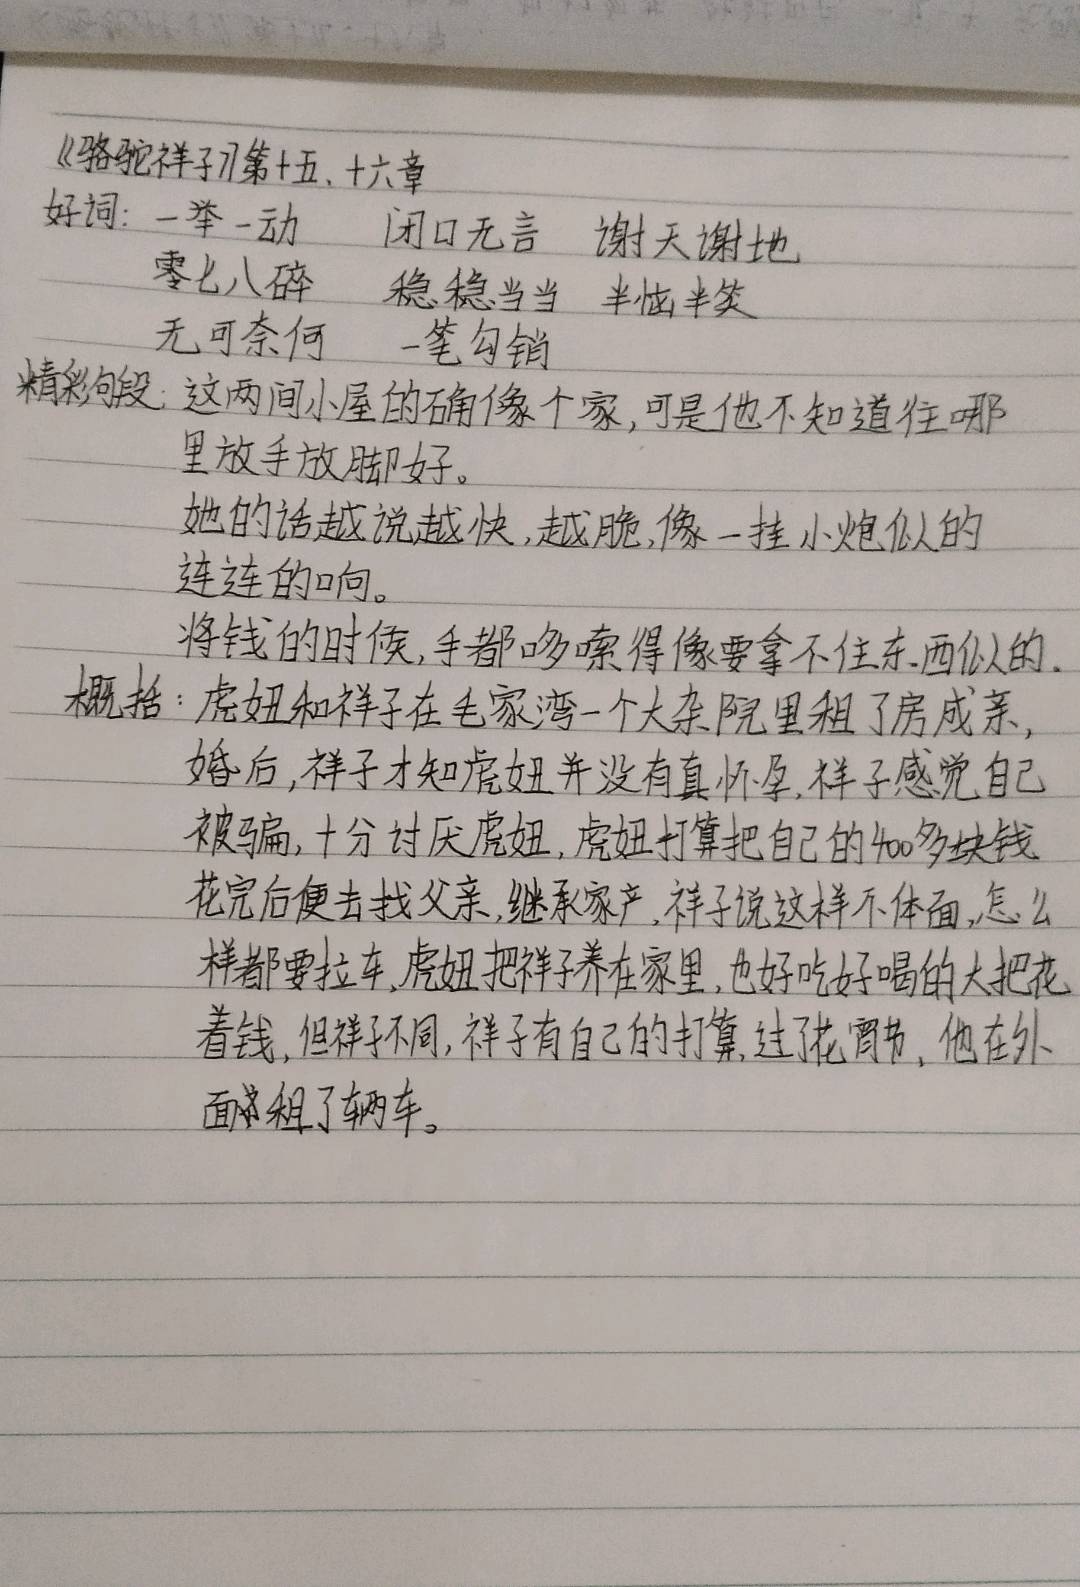 《骆驼祥子》第十五、十六章
好词：一举一动 闭口无言 谢天谢地
零七八碎 稳稳当当 半恼半笑
无可奈何 一笔勾销
精彩句段：这两间小屋的确像个家，可是他不知道往哪
里放手放脚好。
她的话越说越快，越脆，像一挂小炮似的
连连的响。
将钱的时候，手都哆嗦得像要拿不住东西似的.
概括：虎妞和祥子在毛家湾一个大杂院里租了房成亲，
婚后，祥子才知虎妞并没有真怀孕，祥子感觉自己
被骗，十分讨厌虎妞，虎妞打算把自己的400多块钱
花完后便去找父亲，继承家产，祥子说这样不体面，怎么
样都要拉车，虎妞把祥子养在家里，也好吃好喝的大把花
着钱，但祥子不同，祥子有自己的打算，过了花宵节，他在外
面租了辆车。